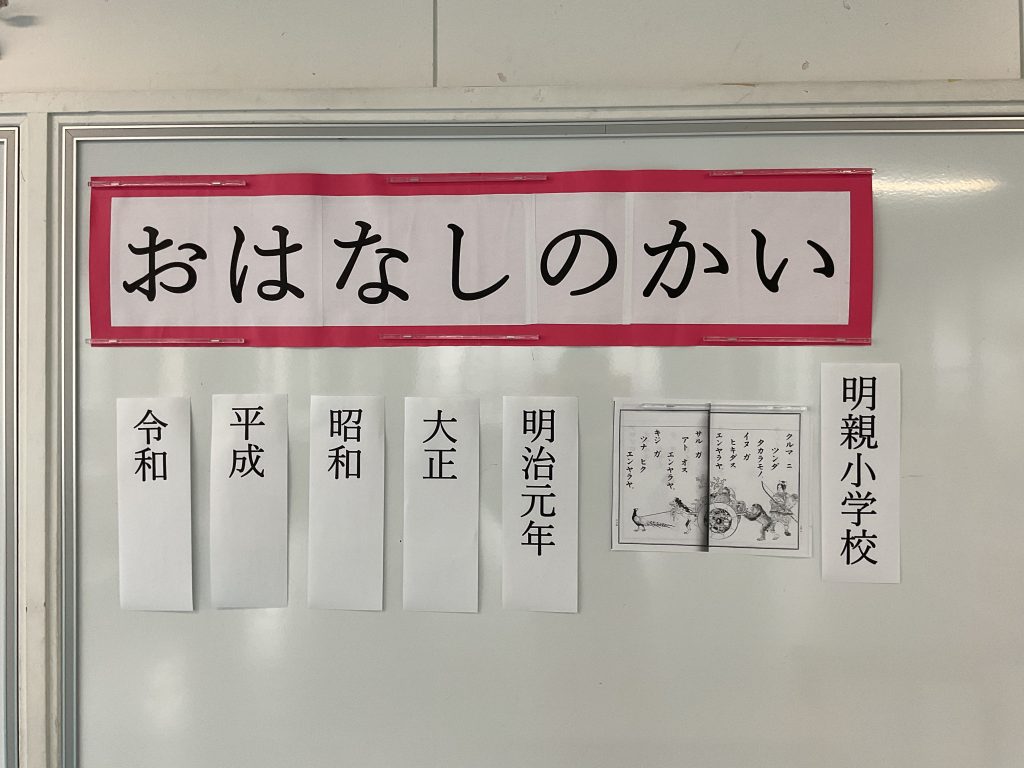 おはなしのかい
明親小学校
クルマ ニ
ツンダ
タカラモノ、
イヌ ガ
ヒキダス
エンヤラヤ。
サル ガ
アト オス
エンヤラヤ、
キジ ガ
ツナ ヒク
エンヤラヤ。
明治元年
大正
昭和
平成
令和